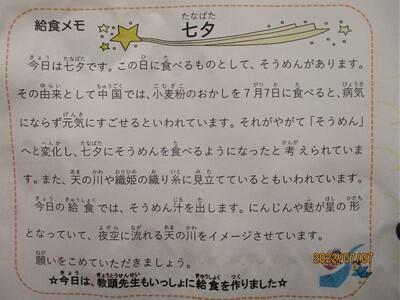 給食メモ
七夕
今日は七夕です。この日に食べるものとして、そうめんがあります。
その由来として中国では、小麦粉のおかしを7月7日に食べると、病気
にならず元気にすごせるといわれています。それがやがて「そうめん」
へと変化し、七夕にそうめんを食べるようになったと考えられていま
す。また、天の川や織姫の織り糸に見立てているともいわれています。
今日の給食では、そうめん汁を出します。にんじんや麩が星の形
となっていて、夜空に流れる天の川をイメージさせています。
願いをこめていただきましょう。
☆今日は、教頭先生もいっしょに給食を作りました☆
2022/07/07